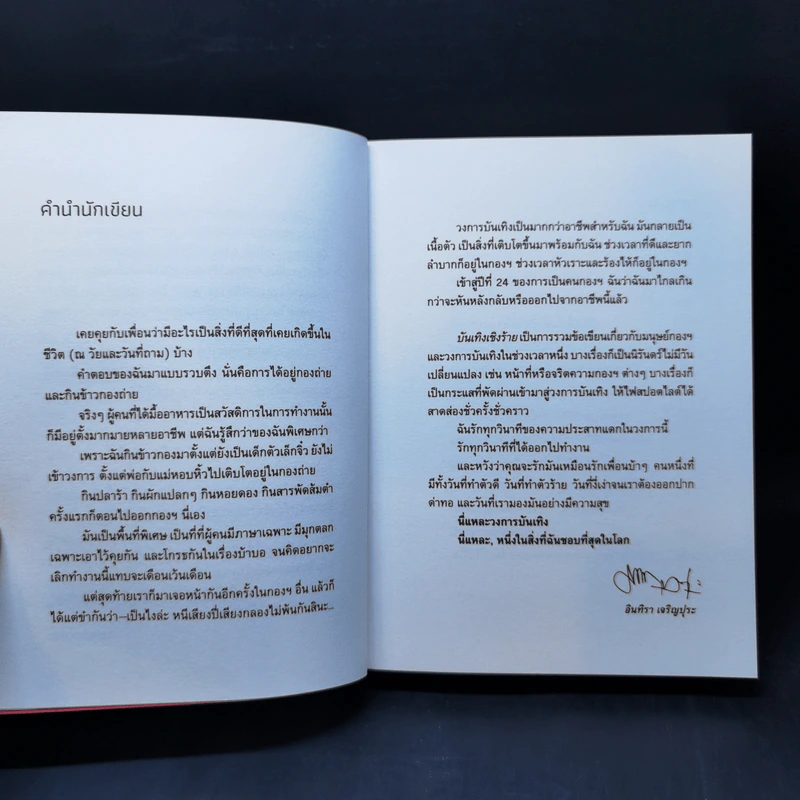 คำนำนักเขียน
เคยคุยกับเพื่อนว่ามีอะไรเป็นสิ่งที่ดีที่สุดที่เคยเกิดขึ้นใน
ชีวิต (ณ วัยและวันที่ถาม) บ้าง
คำตอบของฉันมาแบบรวบตึง นั่นคือการได้อยู่กองถ่าย
และกินข้าวกองถ่าย
จริงๆ ผู้คนที่ได้มื้ออาหารเป็นสวัสดิการในการทำงานนั้น
ก็มีอยู่ตั้งมากมายหลายอาชีพ แต่ฉันรู้สึกว่าของฉันพิเศษกว่า
เพราะฉันกินข้าวกองมาตั้งแต่ยังเป็นเด็กตัวเล็กจิ๋ว ยังไม่
เข้าวงการ ตั้งแต่พ่อกับแม่หอบหิ้วไปเติบโตอยู่ในกองถ่าย
กินปลาร้า กินผักแปลกๆ กินหอยดอง กินสารพัดส้มตำ
ครั้งแรกก็ตอนไปออกกองฯ นี่เอง
มันเป็นพื้นที่พิเศษ เป็นที่ที่ผู้คนมีภาษาเฉพาะ มีมุกตลก
เฉพาะเอาไว้คุยกัน และโกรธกันในเรื่องบ้าบอ จนคิดอยากจะ
เลิกทำงานนี้แทบจะเดือนเว้นเดือน
แต่สุดท้ายเราก็มาเจอหน้ากันอีกครั้งในกองฯ อื่น แล้วก็
ได้แต่ขำกันว่า—เป็นไงล่ะ หนีเสียงปี่เสียงกลองไม่พ้นกันสินะ...
วงการบันเทิงเป็นมากกว่าอาชีพสำหรับฉัน มันกลายเป็น
เนื้อตัว เป็นสิ่งที่เติบโตขึ้นมาพร้อมกับฉัน ช่วงเวลาที่ดีและยาก
ลำบากก็อยู่ในกองฯ ช่วงเวลาหัวเราะและร้องไห้ก็อยู่ในกองฯ
เข้าสู่ปีที่ 24 ของการเป็นคนกองฯ ฉันว่าฉันมาไกลเกิน
กว่าจะหันหลังกลับหรือออกไปจากอาชีพนี้แล้ว
บันเทิงเชิงร้าย เป็นการรวมข้อเขียนเกี่ยวกับมนุษย์กองฯ
และวงการบันเทิงในช่วงเวลาหนึ่ง บางเรื่องก็เป็นนิรันดร์ไม่มีวัน
เปลี่ยนแปลง เช่น หน้าที่หรือจริตความกองฯ ต่างๆ บางเรื่องก็
เป็นกระแสที่พัดผ่านเข้ามาสู่วงการบันเทิง ให้ไฟสปอตไลต์ได้
สาดส่องชั่วครั้งชั่วคราว
ฉันรักทุกวินาทีของความประสาทแดกในวงการนี้
รักทุกวินาทีที่ได้ออกไปทำงาน
และหวังว่าคุณจะรักมันเหมือนรักเพื่อนบ้าๆ คนหนึ่งที่
มีทั้งวันที่ทำตัวดี วันที่ทำตัวร้าย วันที่งี่เง่าจนเราต้องออกปาก
ด่าทอ และวันที่เรามองมันอย่างมีความสุข
นี่แหละวงการบันเทิง
นี่แหละ, หนึ่งในสิ่งที่ฉันชอบที่สุดในโลก
อินทิรา เจริญปุระ